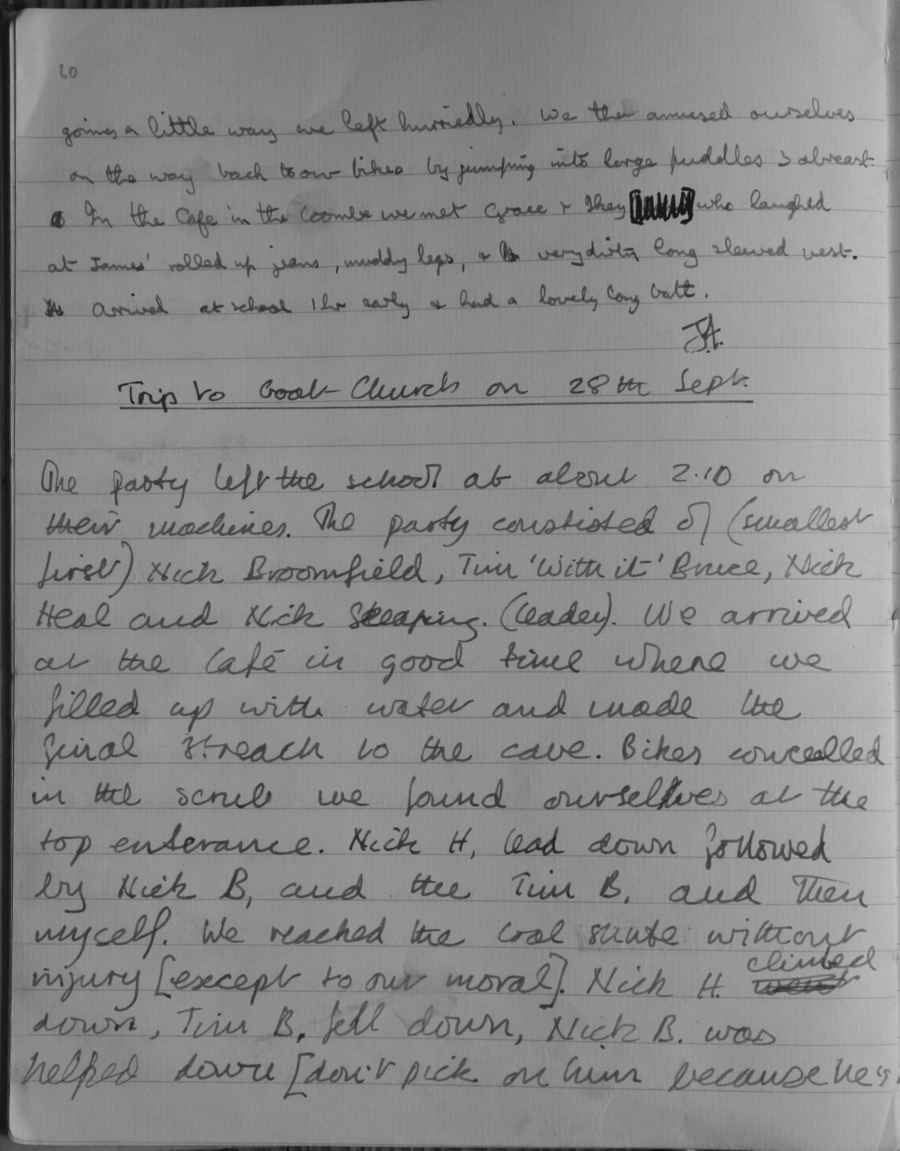 60
going a little way we left hurriedly. We then amused ourselves
on the way back to our bikes by jumping into large puddles 3 abreast.
In the Cafe in the Coombe we met Grace & who laughed
at James' rolled up jeans, muddy legs, & very dirty long sleeved vest.
Arrived at school 1 hr early & had a lovely long bath.
J.A.
Trip to Goat Church on 28th Sept.
The party left the school at about 2.10 on
their machines. The party constisted of (smallest
first) Nick Broomfield, Tim 'With it' Bruce, Nick
Heal and Nick Skeaping. (leader). We arrived
at the Café in good time where we
filled up with water and made the
final streach to the cave. Bikes concealled
in the scrub we found ourselves at the
top enterance. Nick H, lead down followed
by Nick B, and the Tim B. and Then
myself. We reached the coal shute without
injury [except to our moral]. Nick H. climbed
down, Tim B. fell down, Nick B. was
helped down [don't pick on him because he's